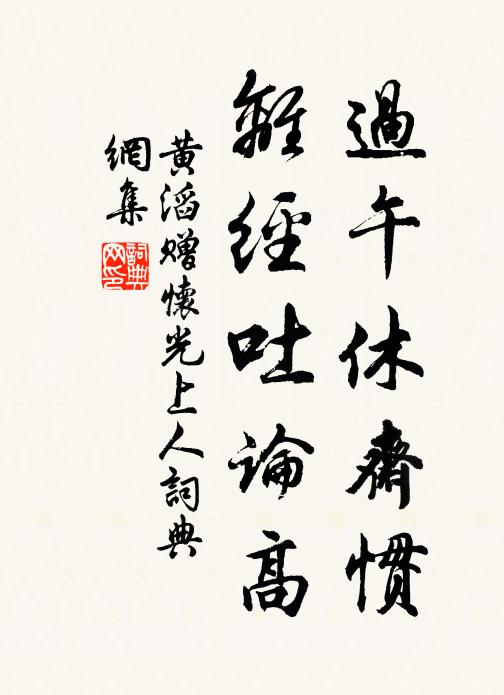 過午休齋慣
離經吐論高
黃滔贈懷光上人詞典
網集
詞典
网印